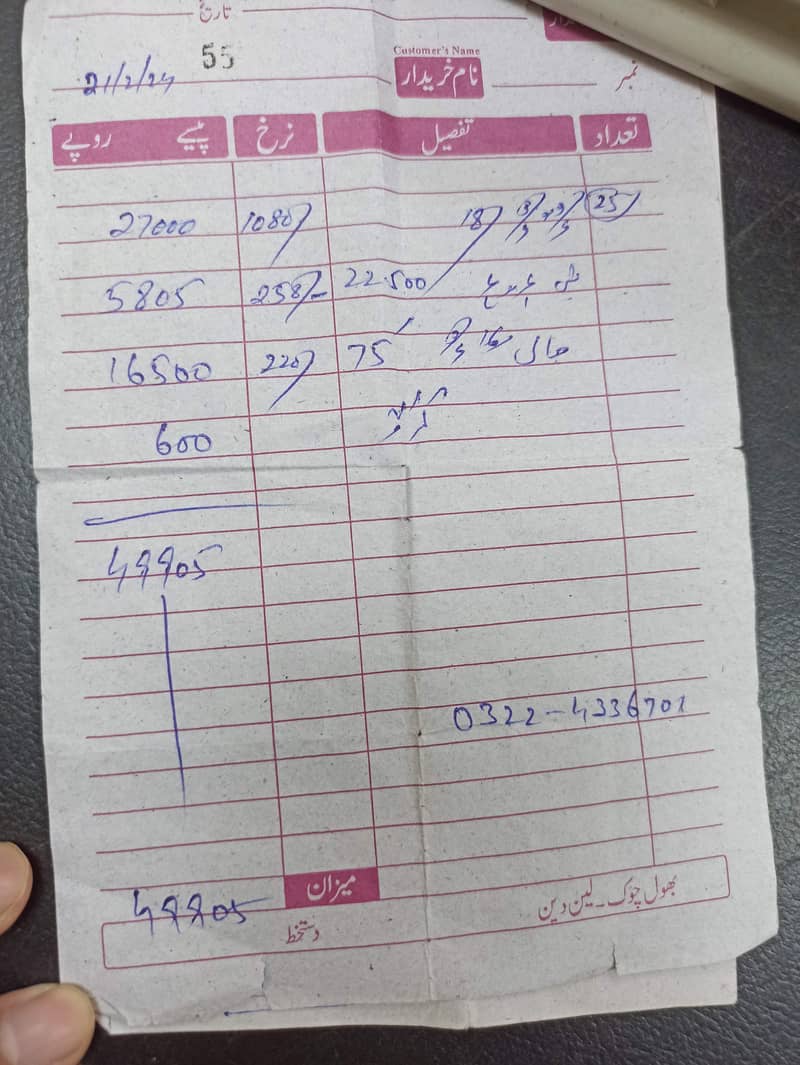 تاریخ
55
Customer's Name
21/2/24 نام خریدار نمبر
تعداد تفصیل نرخ پیسے روپے
25/ 18/ 1080/ 27000
22.500 258/- 5805
جالی 75 220/ 16500
کرایہ 600
49905
0322-4336701
میزان 49905
بھول چوک۔ لین دین
دستخط